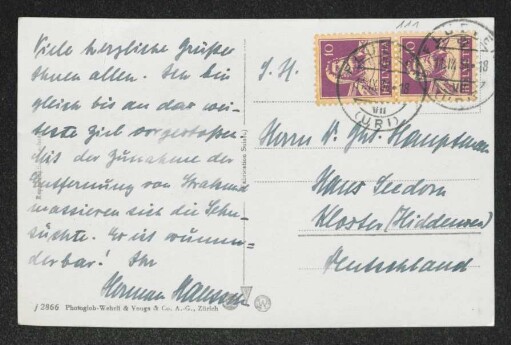 Viele herzliche Grüße
Ihnen allen. Ich bin
gleich bis an das wei-
teste Ziel vorgestoßen.
Mit der Zunahme der
Entfernung von Stralsund
massieren sich die Sehn-
süchte. Es ist wunder-
derbar! Ihr
Herman
S. H.
Herrn Dr. Ght. Hauptmann
Haus Seedorn
Kloster (Hiddensee)
Deutschland
10 10
HELVETIA HELVETIA
(URI)
VII
f 2866 Photoglob-Wehrli & Vouga & Co. A.-G., Zürich